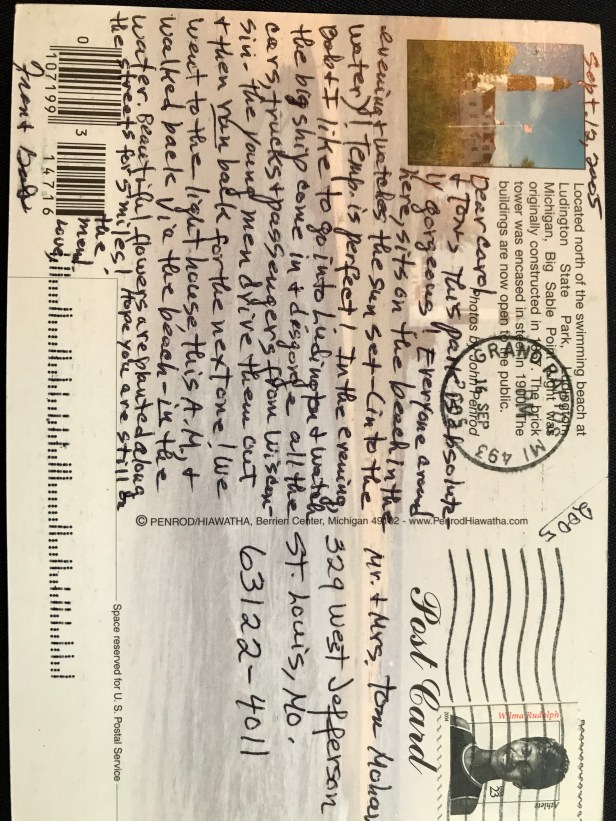 Sept. 12, 2005
Located north of the swimming beach at
Ludington State Park,
Michigan, Big Sable Point Light was
originally constructed in The brick
tower was encased in steel in 1900. The
buildings are now open to the public.
Photos by John Penrod
GRAND RAPIDS MI 493
16 SEP
2005
Dear Carol
& Tom, This park is absolute-
ly gorgeous! Everyone around
here, sits on the beach in the
evening & watches the sun set - (into the
water)! Temp. is perfect! In the evening
Bob & I like to go into Ludington & watch
the big ship come in & disgorge all the
cars, trucks & passengers from Wiscon-
sin - the young men drive them out
& then run back for the next one! We
went to the light house, this A.M., &
walked back via the beach - in the
water. Beautiful flowers are planted along
the streets for 5 miles! Hope you are still on
the
mend.
Love,
& Bob
© PENROD/HIAWATHA, Berrien Center, Michigan 49102 - www.PenrodHiawatha.com
Post Card
Wilma Rudolph
Athlete
23
Mr. & Mrs. Tom
329 West Jefferson
St. Louis, Mo.
63122-4011
Space reserved for U. S. Postal Service
0 107199 3 14716